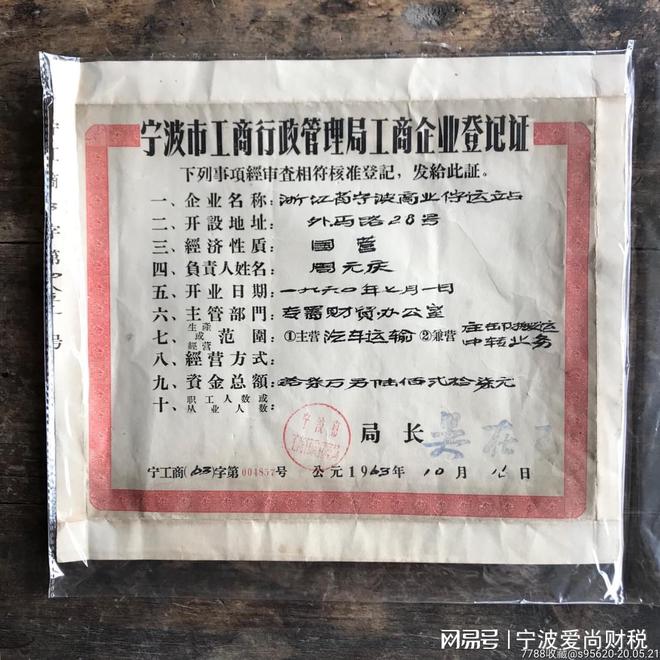 宁波市工商行政管理局工商企业登记证
下列事項經审查相符核准登記，发給此証。
一、企业名称：浙江省宁波商业储运站
二、开設地址：外马路28号
三、經济性质：国营
四、負責人姓名：周元庆
五、开业日期：一九六〇年七月一日
六、主管部門：专署财贸办公室
七、生產或經营范圍：①主营 汽车运输 ②兼营 装卸搬运中转业务
八、經营方式：
九、資金总額：拾柒万另陆佰贰拾柒元
十、职工人数或从业人数：
局长
宁工商(63)字第004857号 公元1963年10月 日
宁波市
网易号 | 宁波爱尚财税
7788收藏@s95620-20.05.21